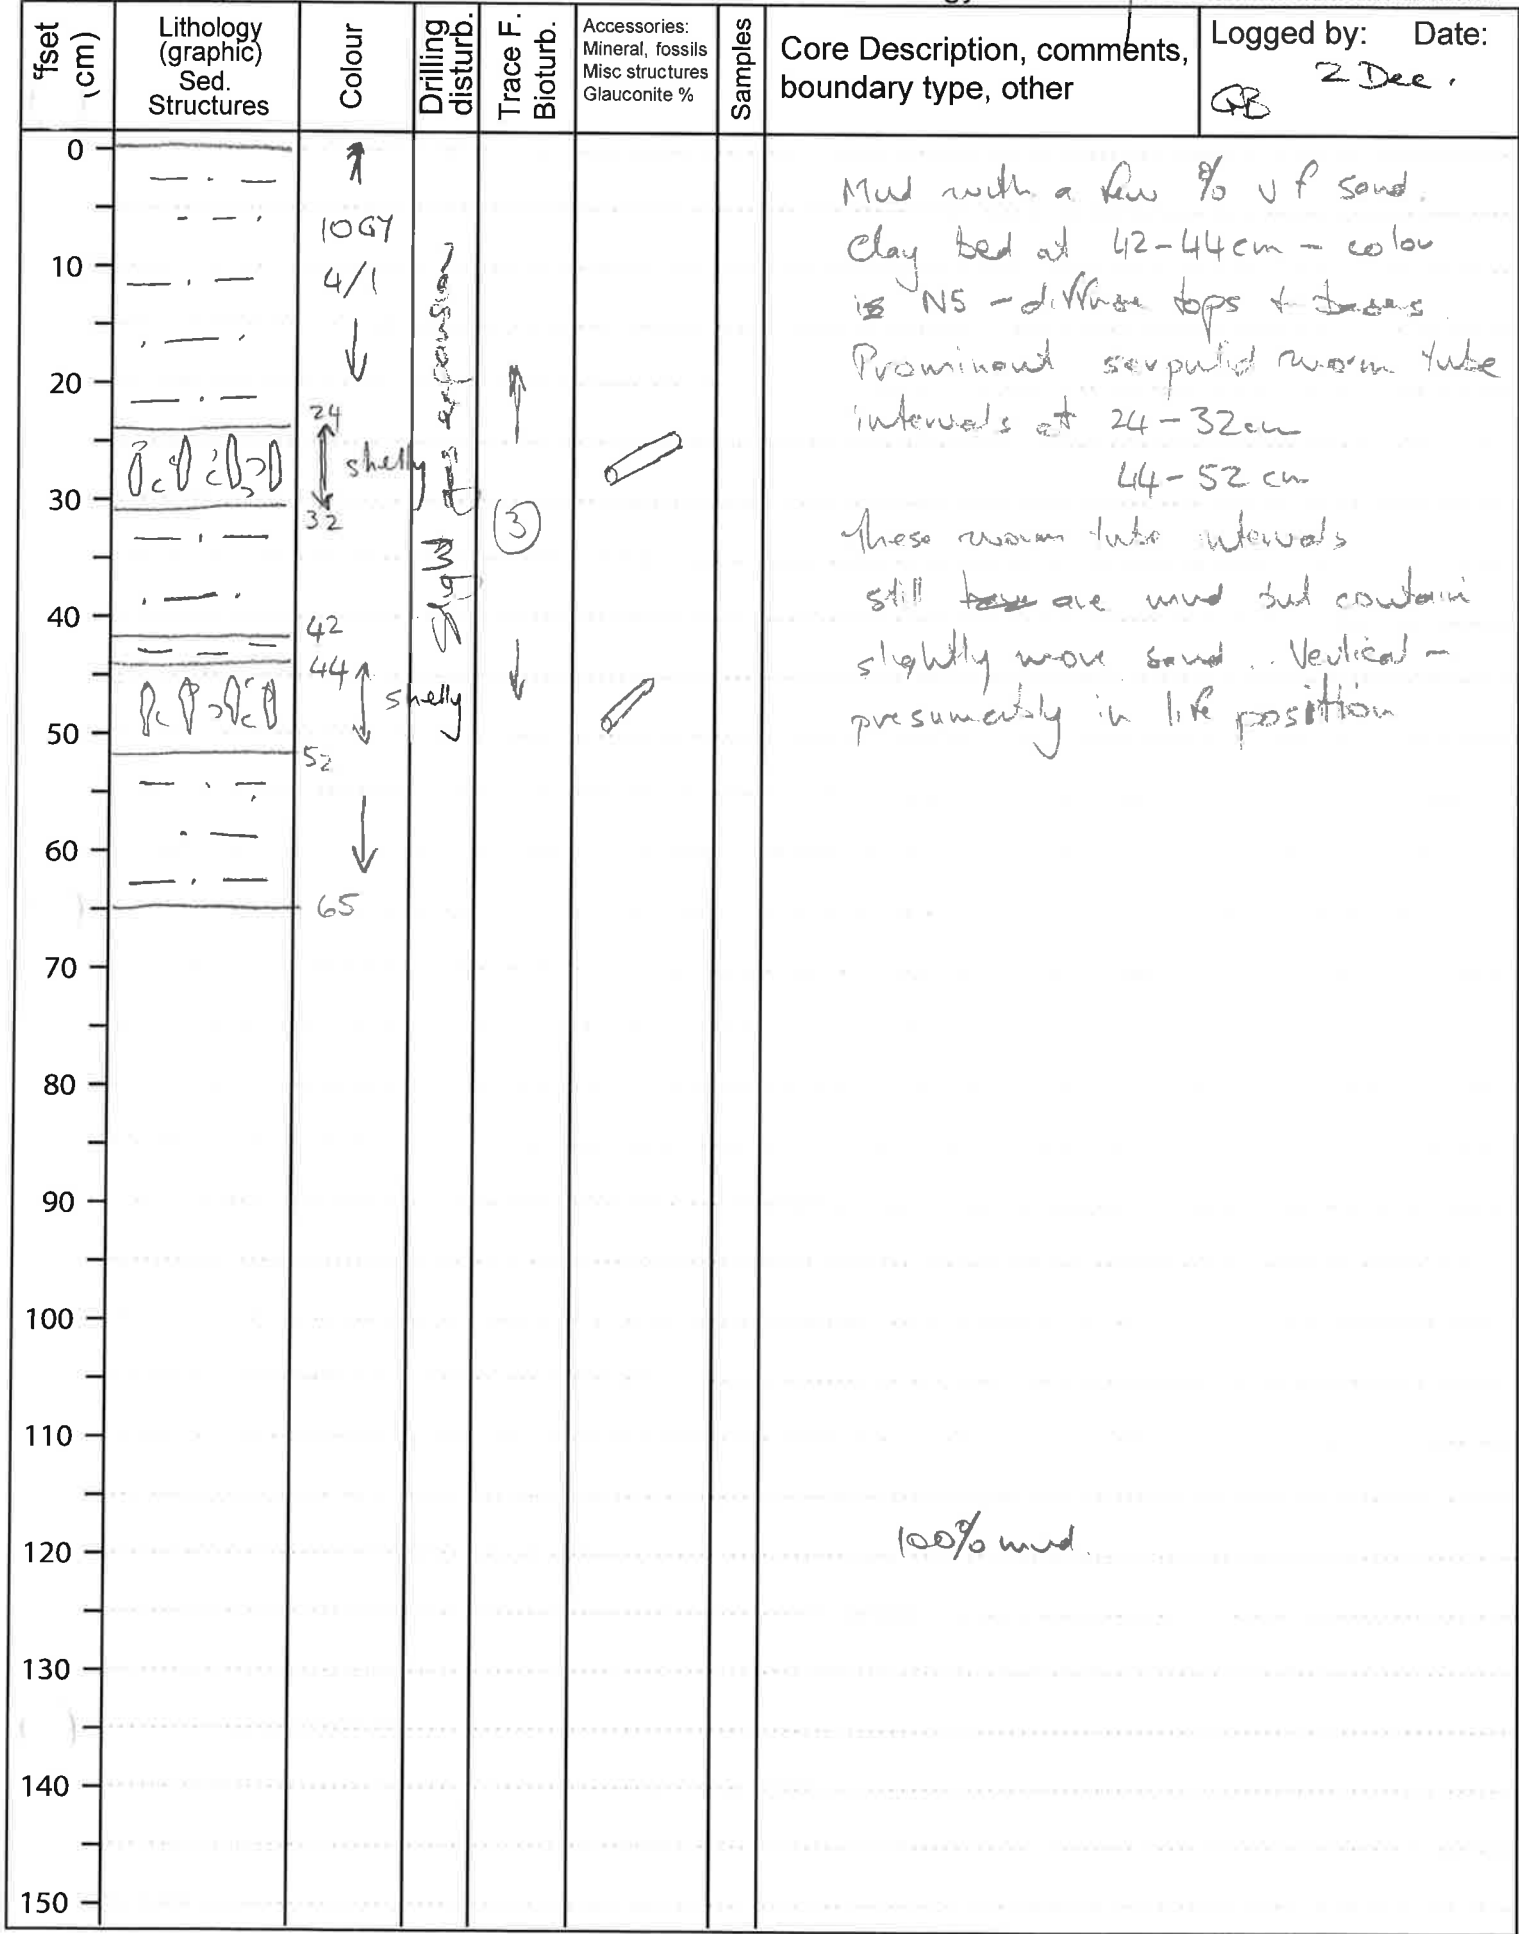 fset
(cm)
Lithology
(graphic)
Sed.
Structures
Colour
Drilling
disturb.
Trace F.
Bioturb.
Accessories:
Mineral, fossils
Misc structures
Glauconite %
Samples
Core Description, comments,
boundary type, other
Logged by: Date:
2 Dec.
0
10
20
30
40
50
60
70
80
90
100
110
120
130
140
150
10GY
4/1
24
shelly
32
42
44
shelly
52
65
gas expansion
3
Mud with a few % vf sand.
Clay bed at 42-44cm - colou
is N5 - diffuse tops +
Prominent serpulid worm tube
intervals at 24-32cm
44-52 cm
These worm tube intervals
still are mud but contain
slightly more sand. Vertical -
presumably in life position
100% mud.